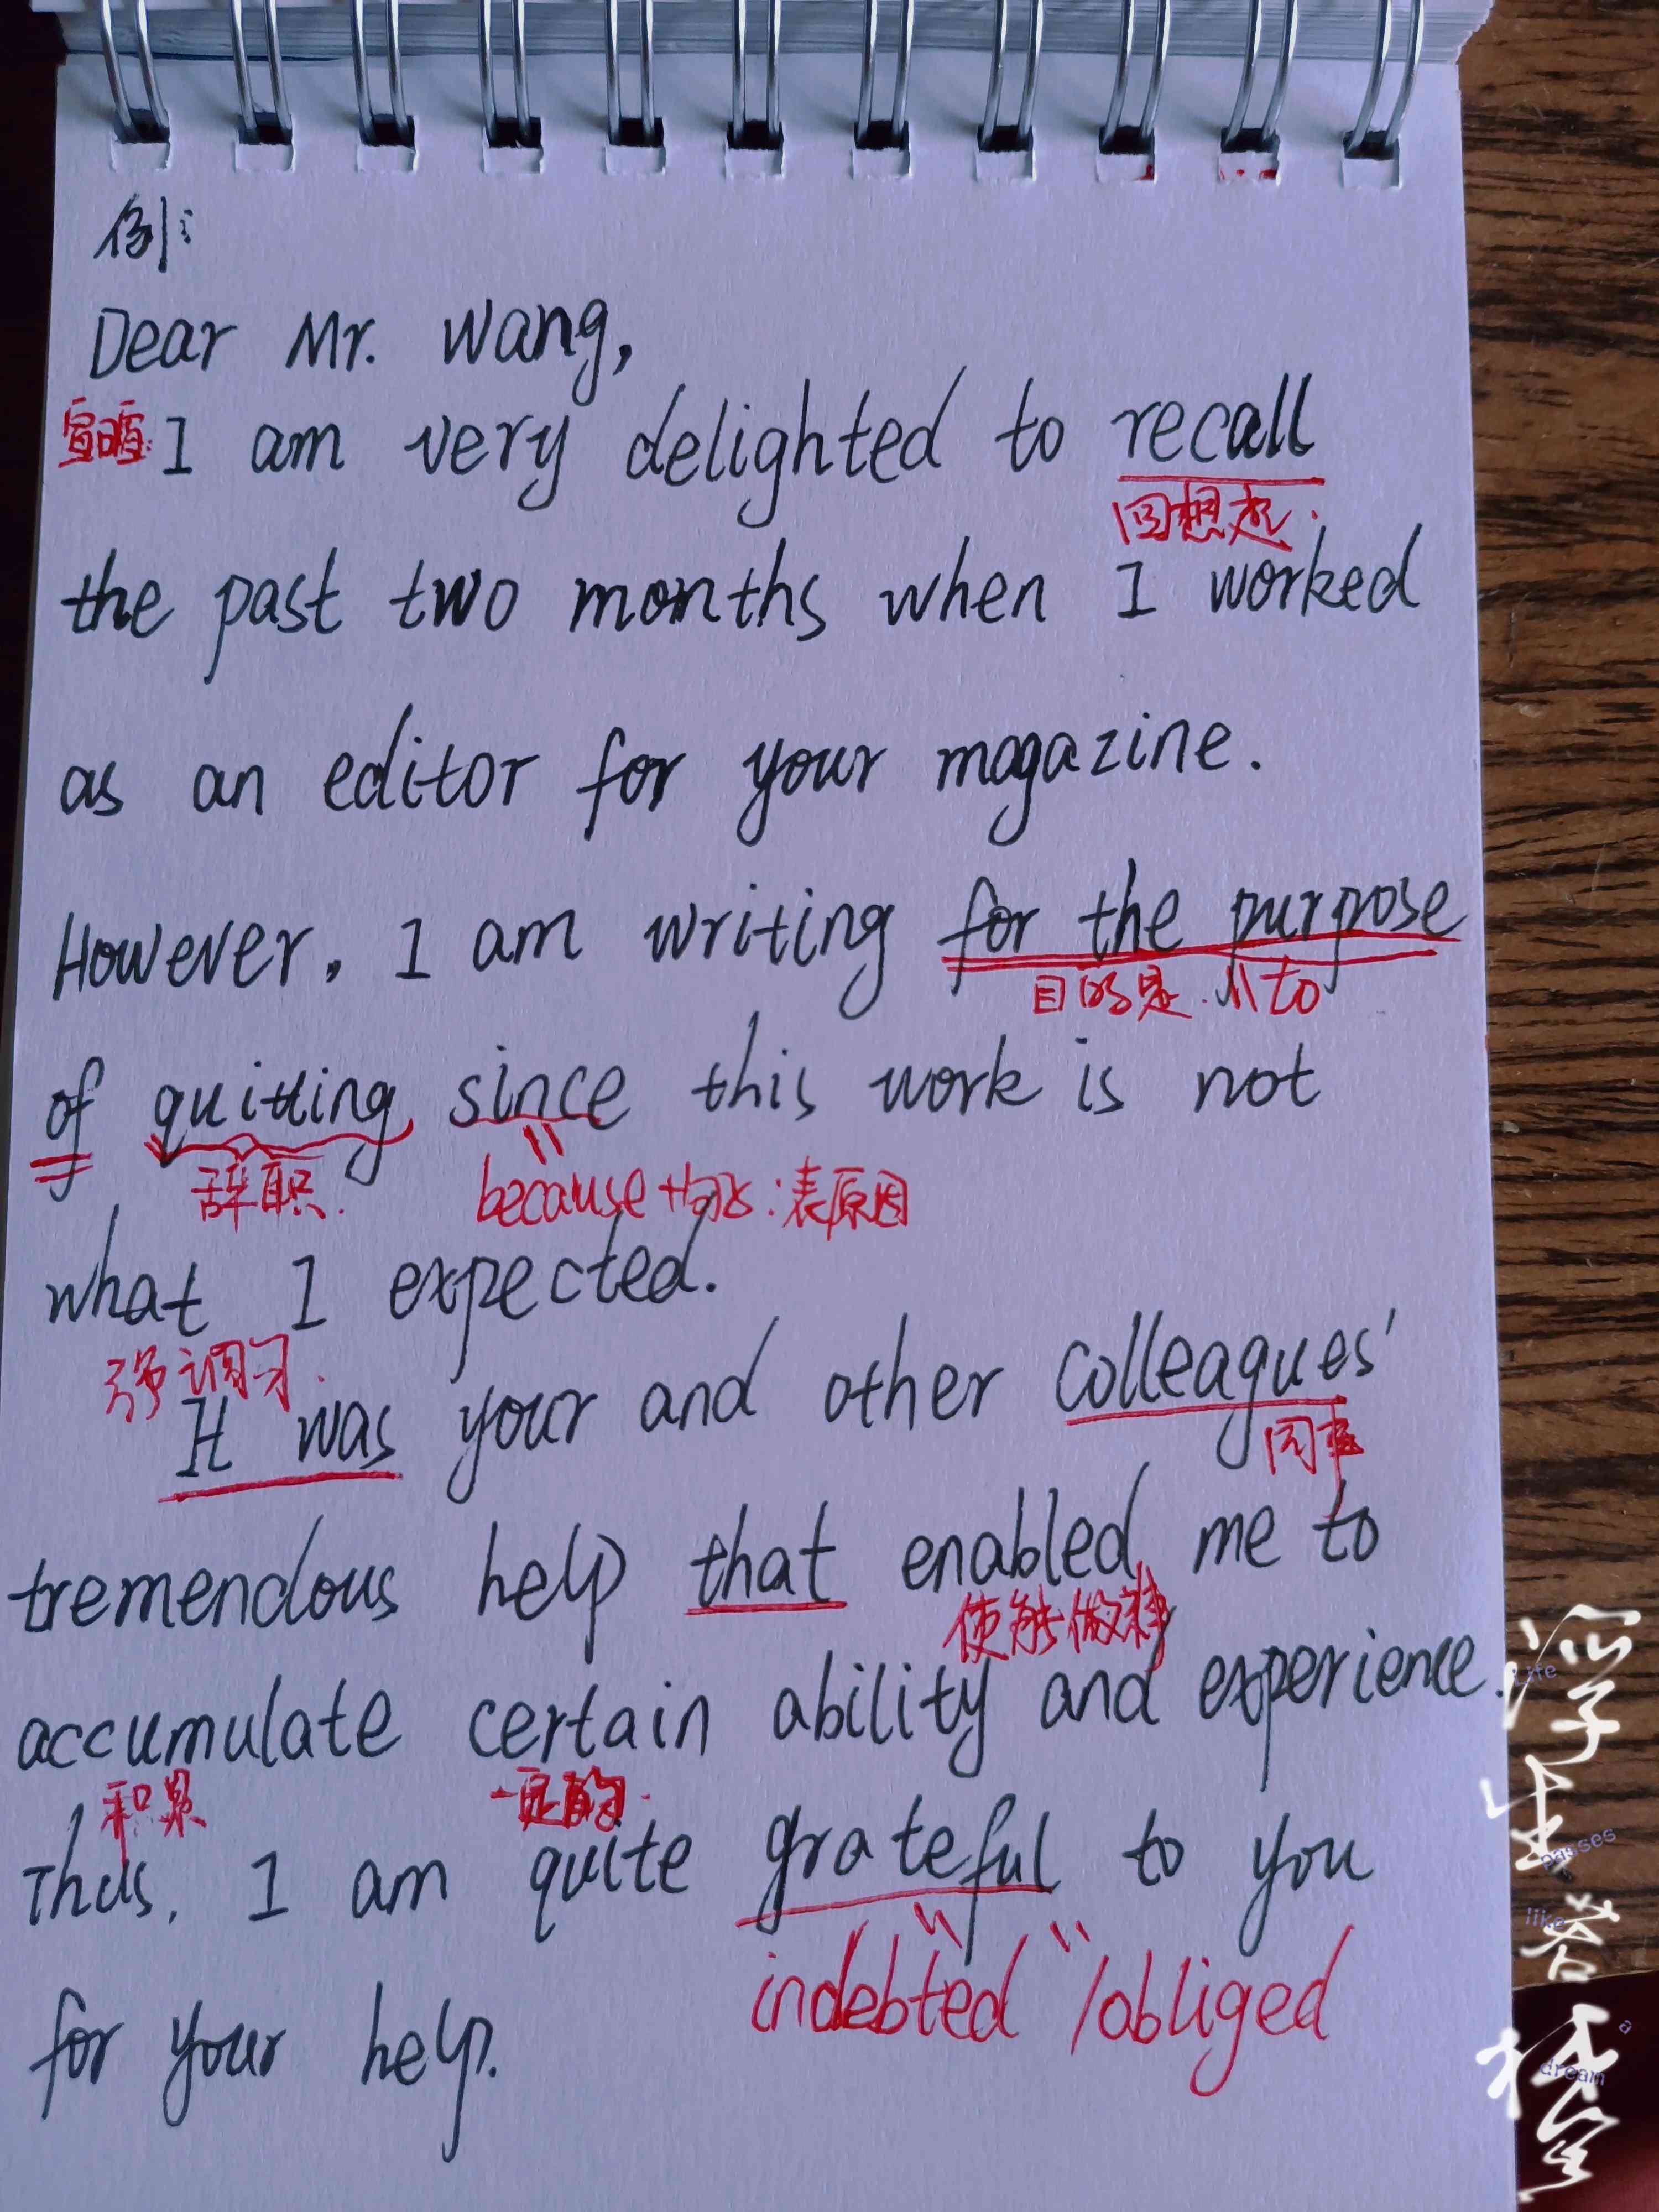 例:
Dear Mr. Wang,
寒暄: I am very delighted to recall
回想起.
the past two months when I worked
as an editor for your magazine.
However, I am writing for the purpose
目的是. \\ to
of quitting since this work is not
辞职. because+句子:表原因
what I expected.
强调句.
It was your and other colleagues'
同事
tremendous help that enabled me to
使能做某事
accumulate certain ability and experience.
积累 一定的.
Thus, I am quite grateful to you
indebted / obliged
for your help.
浮生若梦
life
passes
like
a
dream